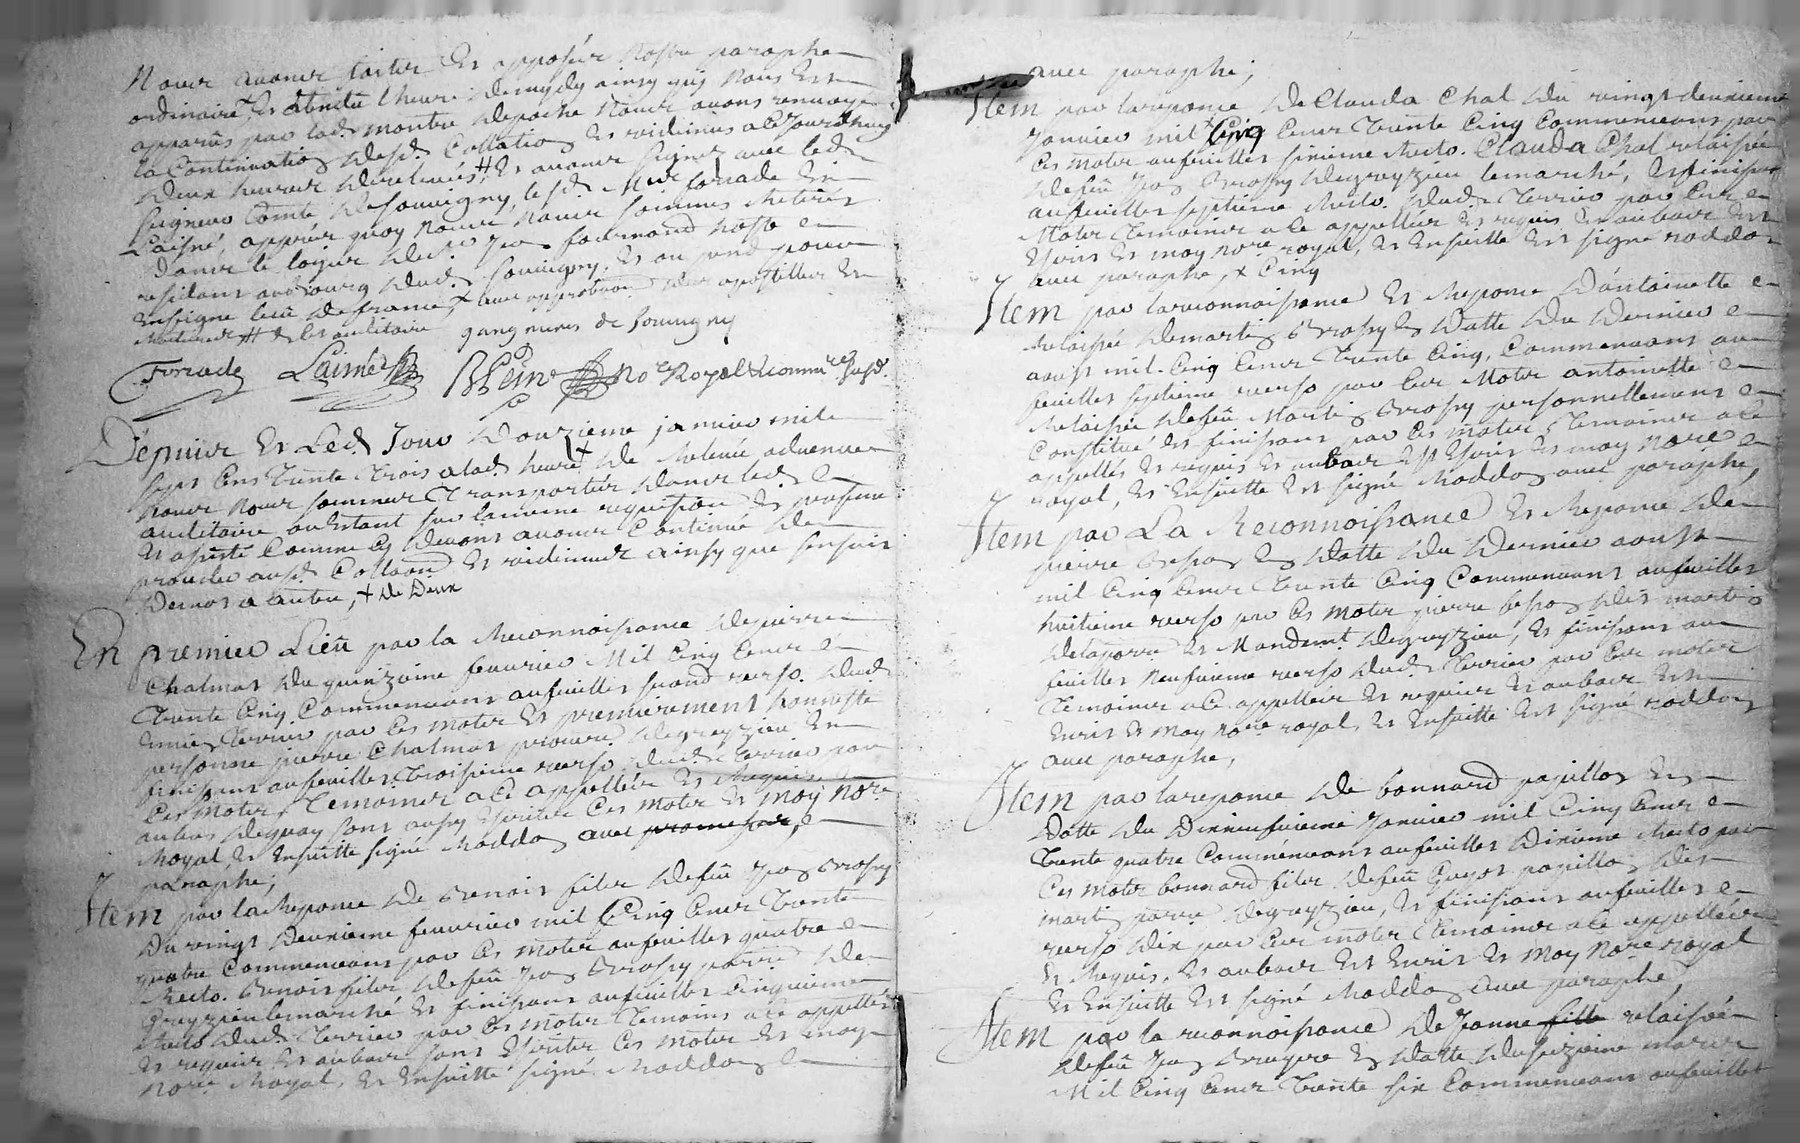 Nous avons fait et apposér nostre paraphe
ordinaire, et attendu l'heure de mydy ainsy quj nous est
apparûs par lad. montre depoche nous avons renvoyé
la Continuation desd. Collation et vidimus a ce jourdhuy
deux heures de relevée, # et avons signéz avec led.
seigneur Comte de souvigny, lesd. Mes forrade et
Laisné, apprés quoy nous nous sommes retirés
dans le logis du sr. Jean fournand hoste
residant au bourg dud. souvigny, et ou pend pour
enseigne leeu de france, x avec approbation des apostilles et
# de les auditoire gangnieres de souvigny
Forrade Laisné Blein Nore Royal & Commire susd.
Dépuis et Led. Jour douzieme janvier mil
sept cens trente trois a lad. heure x de relevée advenue
nous nous sommes transportés dans led.
auditoire ou estant sur la mesme requisition et presence
et assisté comme cy devant avons continué de
proceder ausd. Collaon. et vidimus ainsy que s'ensuit
de mot a autre, x de deux
En premier Lieu par la reconnoissance de pierre
Chalmas du quinzieme feuvrier Mil Cinq Cens
trente Cinq Commencant au feuillet second verso. dud.
terrier par ces mots et premierement honneste
personne pierre Chalmas prourr. de greyzieu et
finissant au feuillet troisieme verso dud. terrier par
ces mots, temoins a ce appellés et requis
au bas de quoy sont aussy escrites ces mots et moy nore.
Royal et ensuitte signé Maddo avec
paraphe;
Item par la reponce de benoit filz de feû Jean brossy
du vingt deuxieme feuvrier mil Cinq Cens trente
quatre Commencant par ces mots au feuillet quatre
recto. benoit filz de feû Jean brossy parre. de
greyzieu le marché et finissant au feuillet Cinquieme
recto dud. terrier par ces mots temoins a ce appellés
et requis et au bas sont escrites ces mots et moy
nore. Royal, et ensuitte signé Maddo
avec paraphe;
Item par la reponce de Clauda Chal du vingt deuxieme
janvier mil x Cinq Cens trente Cinq Commencant par
ces mots au feuillet sixieme recto. Clauda Chal relaissée
de feû Jean brossy de greyzieu le marché, et finissant
au feuillet septieme recto dud. terrier par ces
mots temoins a ce appellés et requis et au bas est
escris et moy nore. royal, et ensuitte est signé Maddo
avec paraphe, x Cinq
Item par la reconnoissance et reponce d'antoinette
relaissée de martin brossy en datte du dernier
aoust mil Cinq Cens trente Cinq, Commencant au
feuillet septieme verso par ces mots antoinette
relaissée de feû Martin brossy personnellement
constitué et finissant par ces mots temoins a ce
appellés et requis et au bas est escris et moy nore.
royal, et ensuitte est signé Maddo avec paraphe,
Item par La Reconnoissance et reponce de
pierre en datte du dernier aoust
mil Cinq Cens trente Cinq Commencant au feuillet
huitieme verso par ces mots pierre
et Mandemt. de greyzieu, et finissant au
feuillet neufvieme verso dud. terrier par ces mots
temoins a ce appellés et requis et au bas est
escris et moy nore. royal, et ensuitte est signé Maddo
avec paraphe,
Item par la reponce de bonnard papillon en
datte du dixneufvieme janvier mil Cinq Cens
trente quatre Commencant au feuillet dixieme recto par
ces mots bonnard filz de feû Guyot papillon
parre. de greyzieu, et finissant au feuillet
verso dix par ces mots temoins a ce appellés
et requis, et au bas est escris et moy nore. royal
et ensuitte est signé Maddo avec paraphe,
Item par la reconnoissance de Jeanne fille relaissée
de feû Jean bruyere en datte du seizieme mars
Mil Cinq Cens trente six Commencant au feuillet